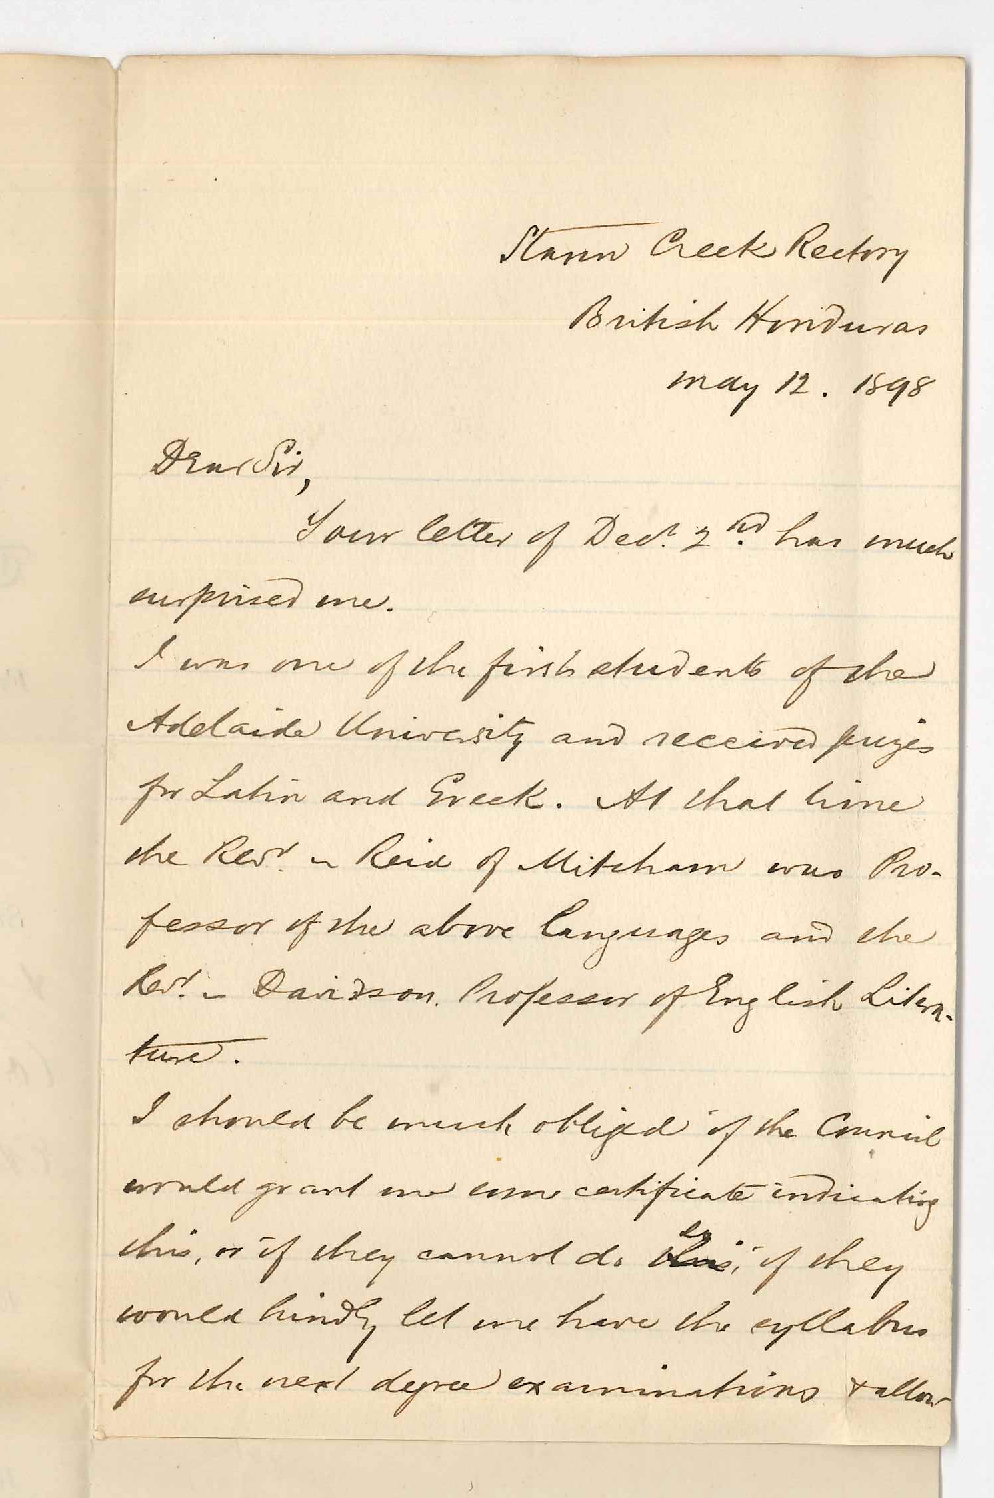 Stann Creek Rectory
British Honduras
May 12. 1898
Dear Sir,
Your letter of Decr. 2nd. has much
surprised me.
I was one of the first students of the
Adelaide University and received prizes
for Latin and Greek. At that time
the Revd. — Reid of Mitcham was Pro-
fessor of the above languages and the
Revd. — Davidson, Professor of English Litera-
ture.
I should be much obliged if the Council
would grant me some certificate indicating
this, or if they cannot do so this, if they
would kindly let me have the syllabus
for the next degree examinations & allow